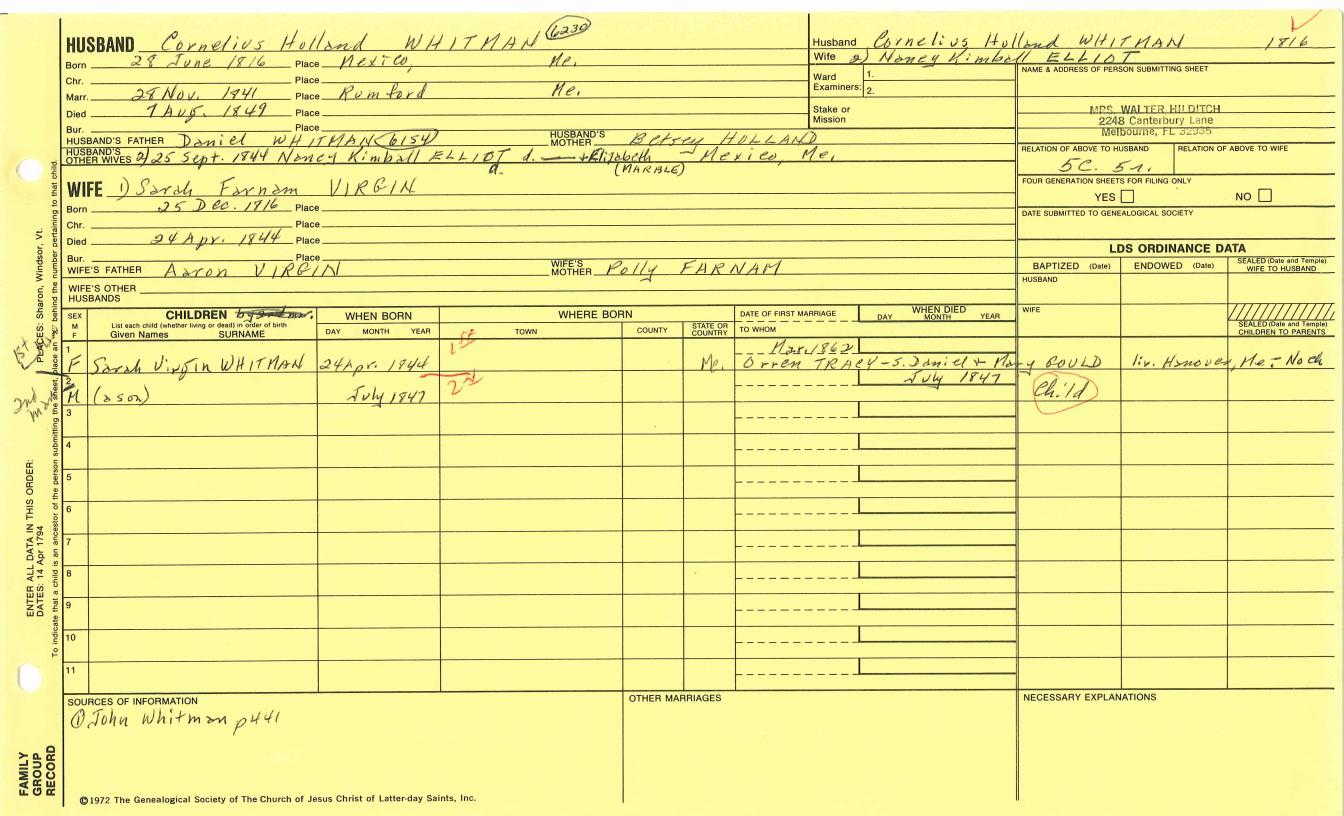 HUSBAND Cornelius Holland WHITMAN 6230
Born 28 June 1816 Place Mexico, Me.
Chr. Place
Marr. 28 Nov. 1841 Place Rumford Me.
Died 7 Aug. 1849 Place
Bur. Place
HUSBAND'S FATHER Daniel WHITMAN (6154) HUSBAND'S MOTHER Betsey HOLLAND
HUSBAND'S OTHER WIVES 2) 25 Sept. 1844 Nancy Kimball ELLIOT d. + Elizabeth Mexico, Me.
d. (MARBLE)
WIFE 1) Sarah Farnam VIRGIN
Born 25 Dec. 1816 Place
Chr. Place
Died 24 Apr. 1844 Place
Bur. Place
WIFE'S FATHER Aaron VIRGIN WIFE'S MOTHER Polly FARNAM
WIFE'S OTHER HUSBANDS
Husband Cornelius Holland WHITMAN 1816
Wife 2) Nancy Kimball ELLIOT
Ward Examiners: 1.
2.
Stake or Mission
NAME & ADDRESS OF PERSON SUBMITTING SHEET
MRS. WALTER HILDITCH
2248 Canterbury Lane
Melbourne, FL 32935
RELATION OF ABOVE TO HUSBAND RELATION OF ABOVE TO WIFE
5C. 5r.
FOUR GENERATION SHEETS FOR FILING ONLY
YES NO
DATE SUBMITTED TO GENEALOGICAL SOCIETY
LDS ORDINANCE DATA
BAPTIZED (Date) ENDOWED (Date) SEALED (Date and Temple) WIFE TO HUSBAND
HUSBAND
WIFE
SEALED (Date and Temple) CHILDREN TO PARENTS
SEX M F
CHILDREN
List each child (whether living or dead) in order of birth
Given Names SURNAME
WHEN BORN
DAY MONTH YEAR
WHERE BORN
TOWN COUNTY STATE OR COUNTRY
DATE OF FIRST MARRIAGE
TO WHOM
WHEN DIED
DAY MONTH YEAR
1st
1 Mar. 1862
F Sarah Virgin WHITMAN 24 Apr. 1844 Me. Orren TRACY - S. Daniel & Mary GOULD liv. Hanover, Me. - No ch
2nd
2 July 1847
M (a son) July 1847 Child
3
4
5
6
7
8
9
10
11
SOURCES OF INFORMATION
① John Whitman p441
OTHER MARRIAGES
NECESSARY EXPLANATIONS
©1972 The Genealogical Society of The Church of Jesus Christ of Latter-day Saints, Inc.
FAMILY GROUP RECORD
ENTER ALL DATA IN THIS ORDER:
DATES: 14 Apr 1794
PLACES: Sharon, Windsor, Vt.
To indicate that a child is an ancestor of the person submitting the sheet, place an "X" behind the number pertaining to that child.
1st
2nd m.